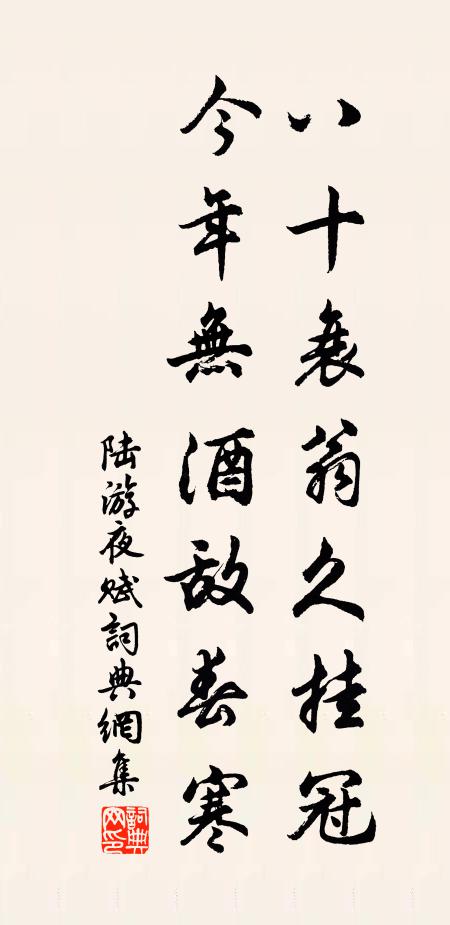 八十衰翁久挂冠
今年無酒敵春寒
陆游夜赋詞典網集
詞典網印